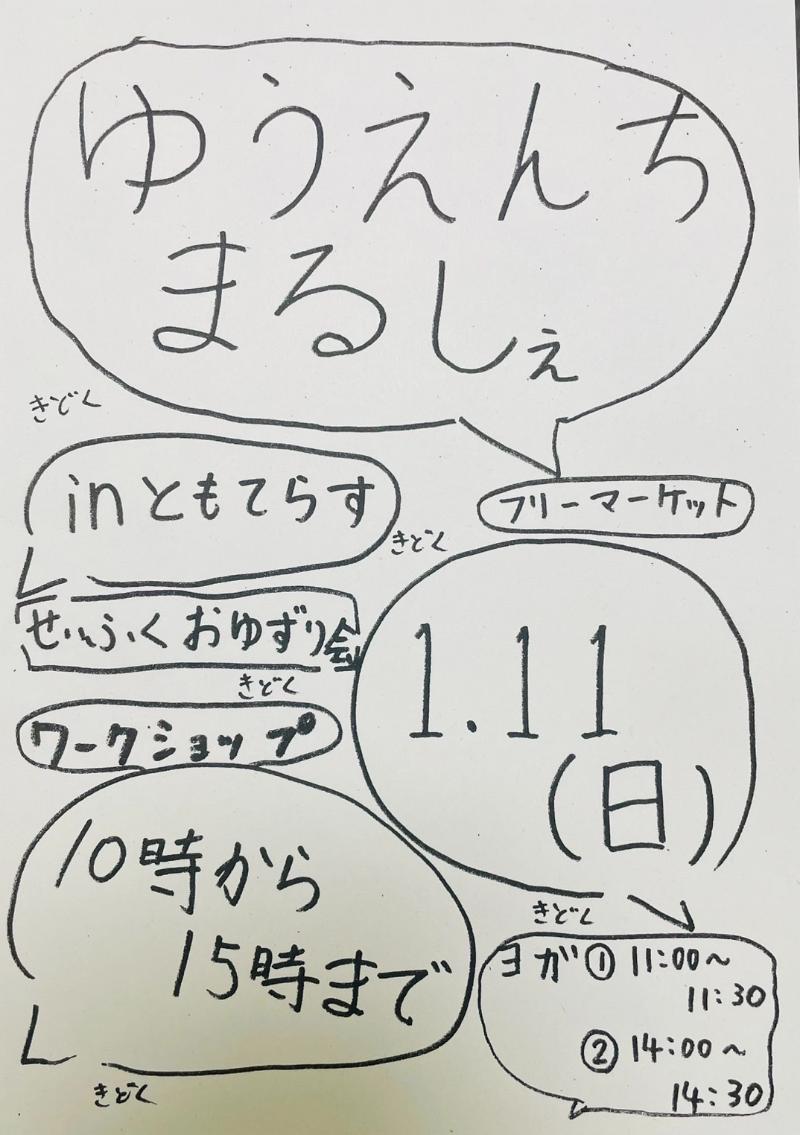 ゆうえんち
まるしぇ
きどく
inともてらす
フリーマーケット
きどく
せいふくおゆずり会
きどく
1.11
(日)
ワークショップ
10時から
15時まで
きどく
きどく
ヨガ① 11:00～
11:30
② 14:00～
14:30